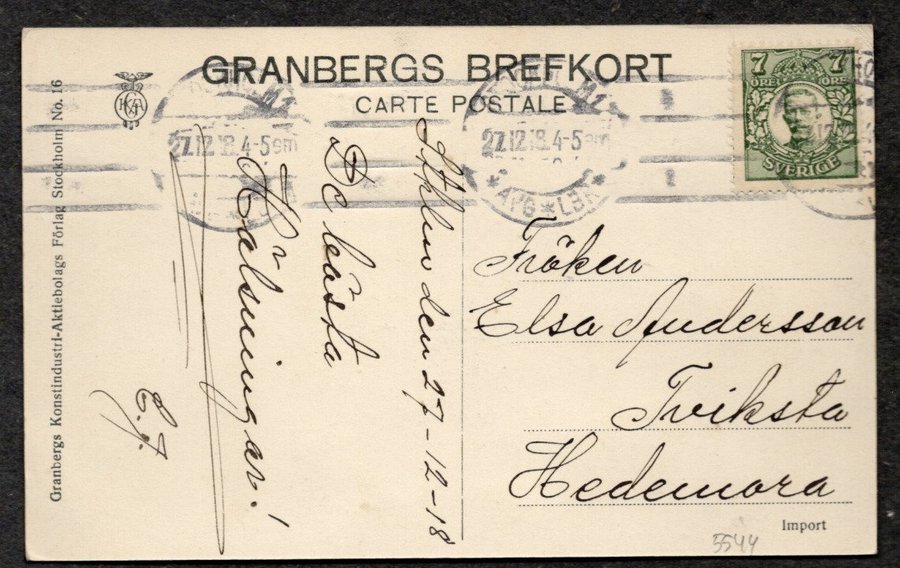 GRANBERGS BREFKORT
CARTE POSTALE
7 7
ÖRE ÖRE
SVERIGE
27.12.18.4-5em
27.12.18.4-5em
* APG * LBR *
Sthlm den 27-12-18
De bästa
Hälsningar!
E.J.
Fröken
Elsa Andersson
Tviksta
Hedemora
Import
5544
Granbergs Konstindustri-Aktiebolags Förlag Stockholm No. 16